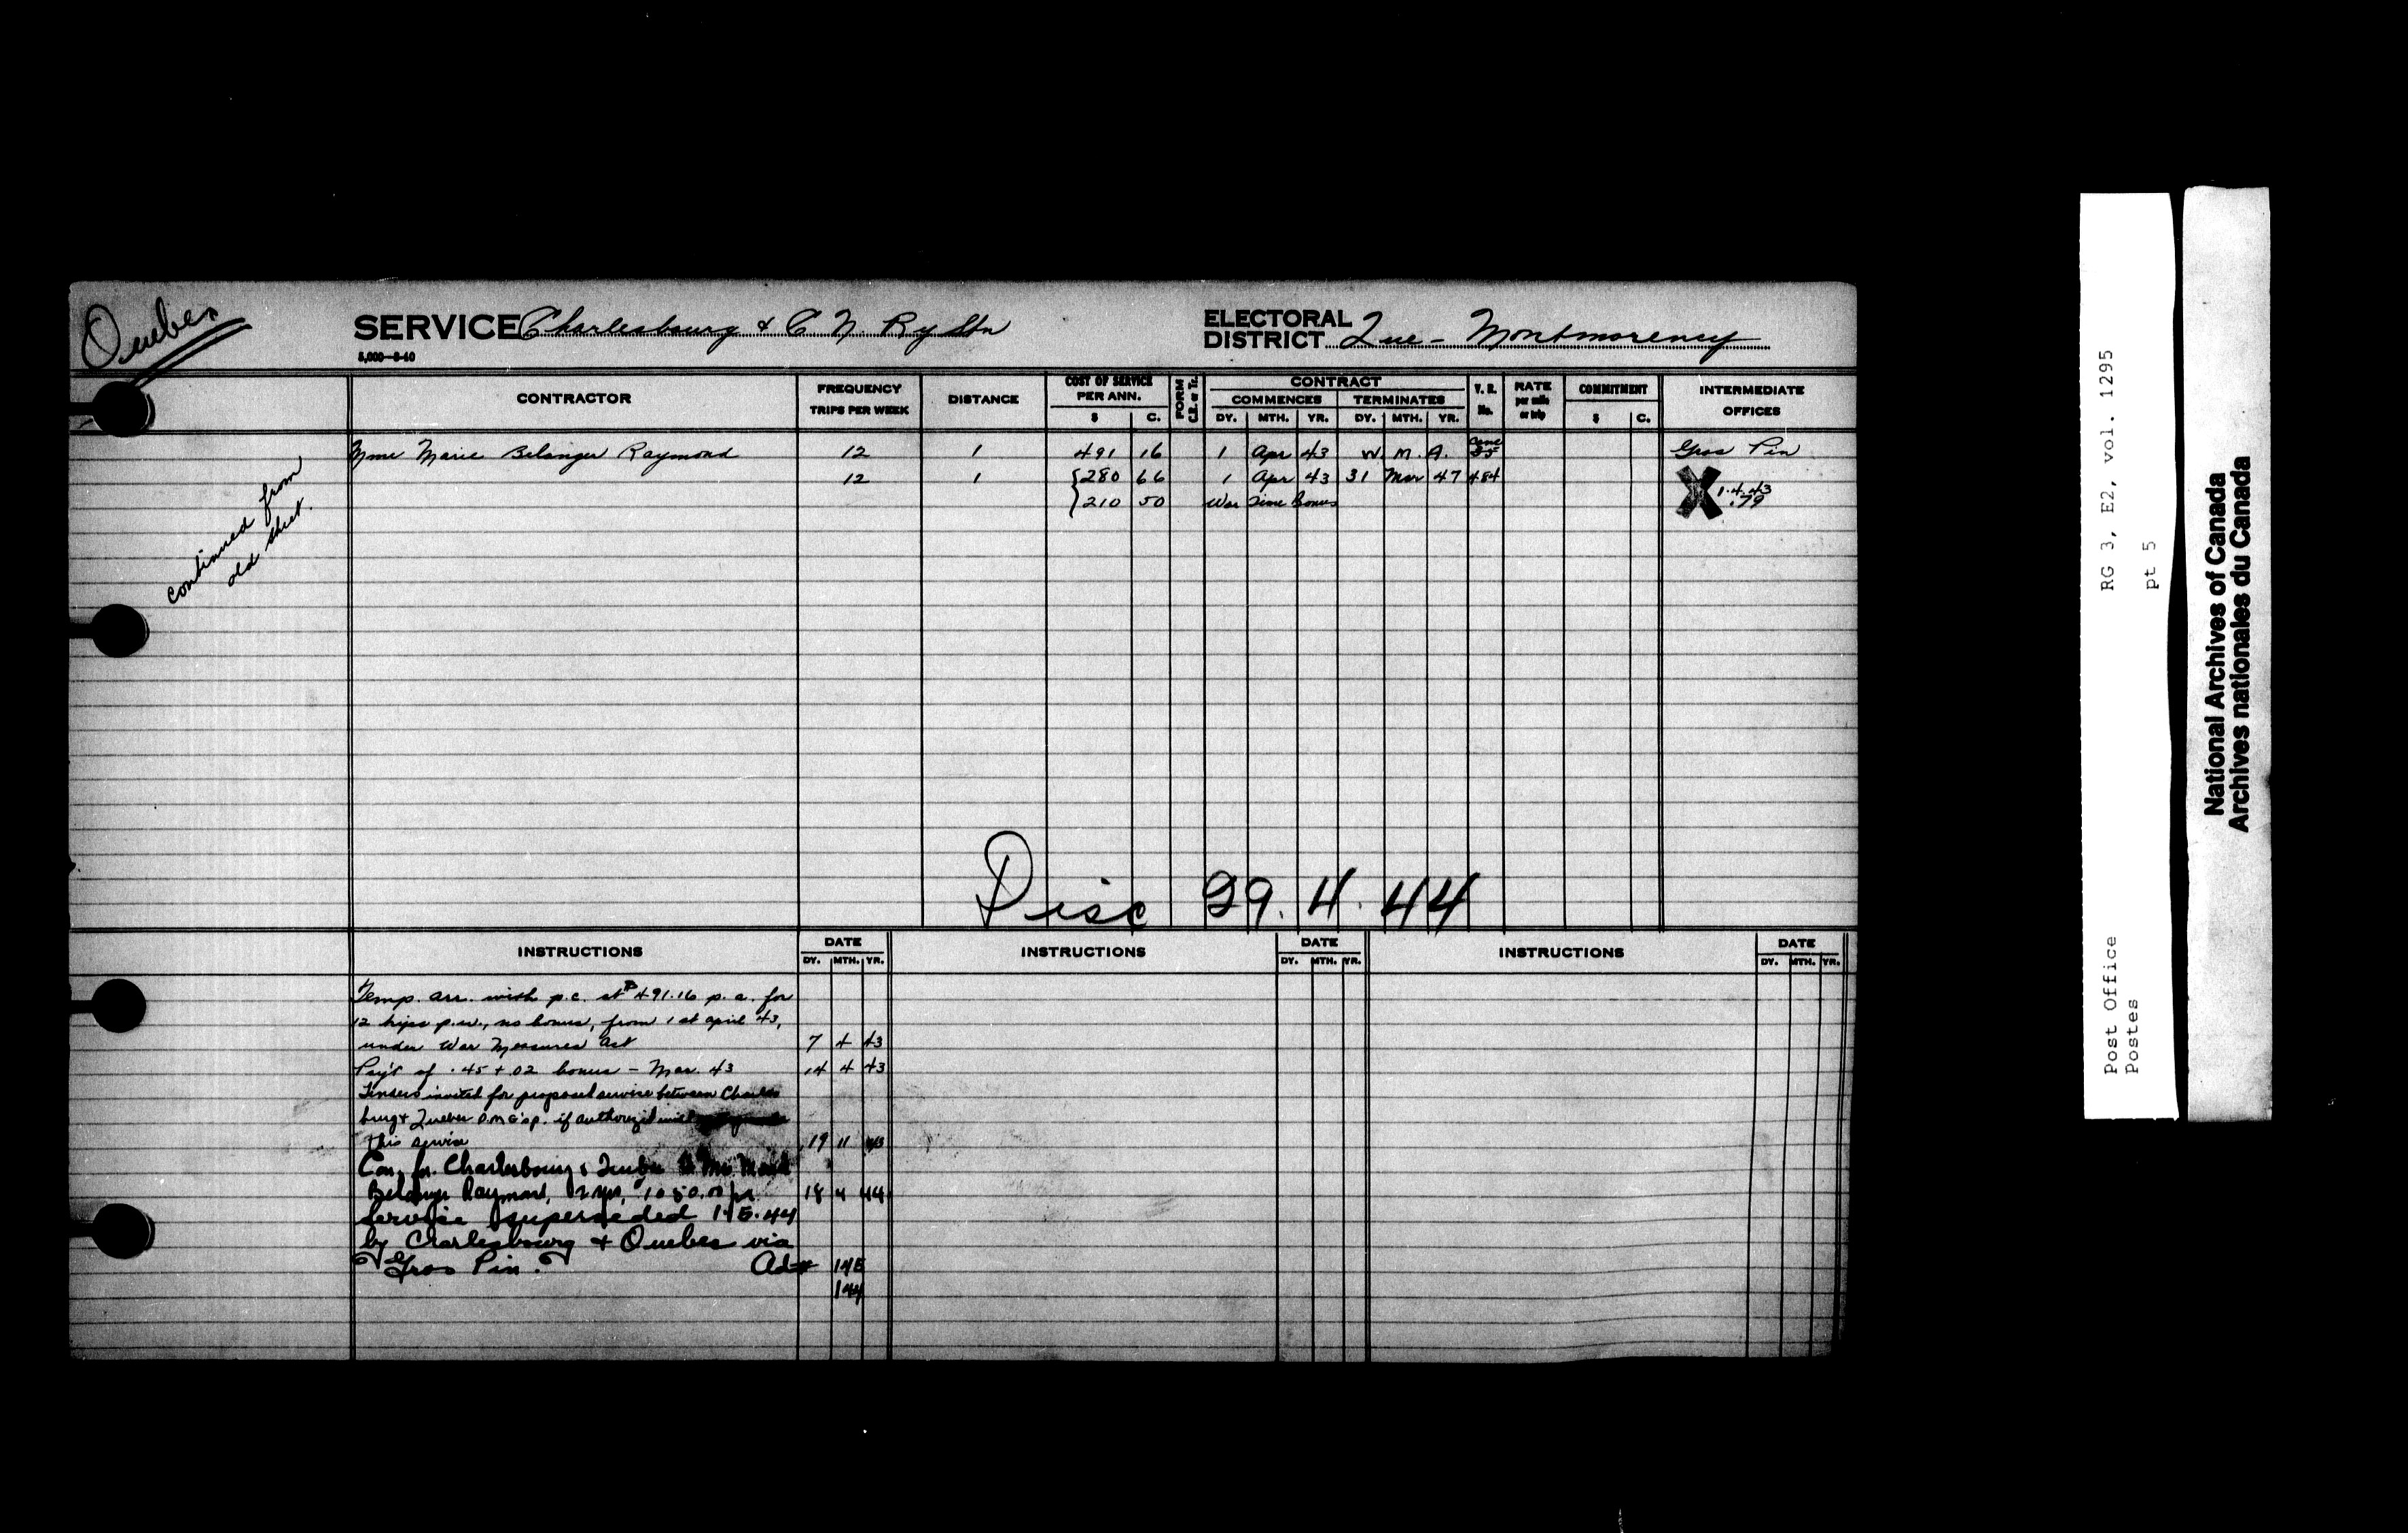 Quebec
SERVICE Charlesbourg & C. N. Ry Stn
5,000—8-40
ELECTORAL DISTRICT Que - Montmorency
CONTRACTOR
FREQUENCY TRIPS PER WEEK
DISTANCE
COST OF SERVICE PER ANN. $ C.
FORM C.E. or Tr.
CONTRACT
COMMENCES DY. MTH. YR.
TERMINATES DY. MTH. YR.
T. R. No.
RATE per mile or trip
COMMITMENT $ C.
INTERMEDIATE OFFICES
Mme Marie Belanger Raymond 12 1 491 16 1 Apr 43 W. M. A. Gros Pin
12 1 280 66 1 Apr 43 31 Mar 47 484
210 50 War Time bonus
X 1.4.43
.79
continued from
old sheet.
Disc 29. 4. 44
INSTRUCTIONS DATE DY. MTH. YR.
INSTRUCTIONS DATE DY. MTH. YR.
INSTRUCTIONS DATE DY. MTH. YR.
Temp. arr. with p.c. at $491.16 p. a. for
12 trips p.w., no bonus, from 1st april 43,
under War Measures Act 7 4 43
Pay't of .45 + .02 bonus - Mar. 43 14 4 43
Tenders invited for proposed service between Charles
burg & Quebec if authorized will
this service 19 11 43
Con. for Charlesbourg & Quebec
Belanger Raymond, 1050.00 18 4 44
Service superseded 1.5.44
by Charlesbourg & Quebec via
Gros Pin.
Post Office
Postes
RG 3, E2, vol. 1295
pt 5
National Archives of Canada
Archives nationales du Canada